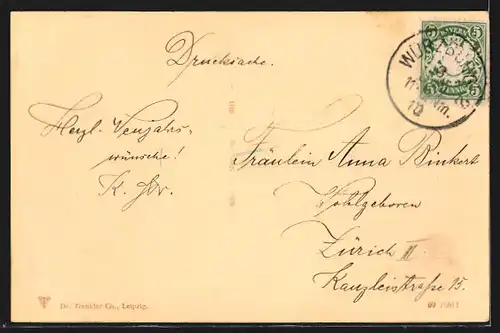 Drucksache.
BAYERN
5 5
Herzl. Neujahrs-
wünsche!
Fräulein Anna Binkert
Wohlgeboren
Zürich III
Kanzleistraße 15.
Dr. Trenkler Co., Leipzig.